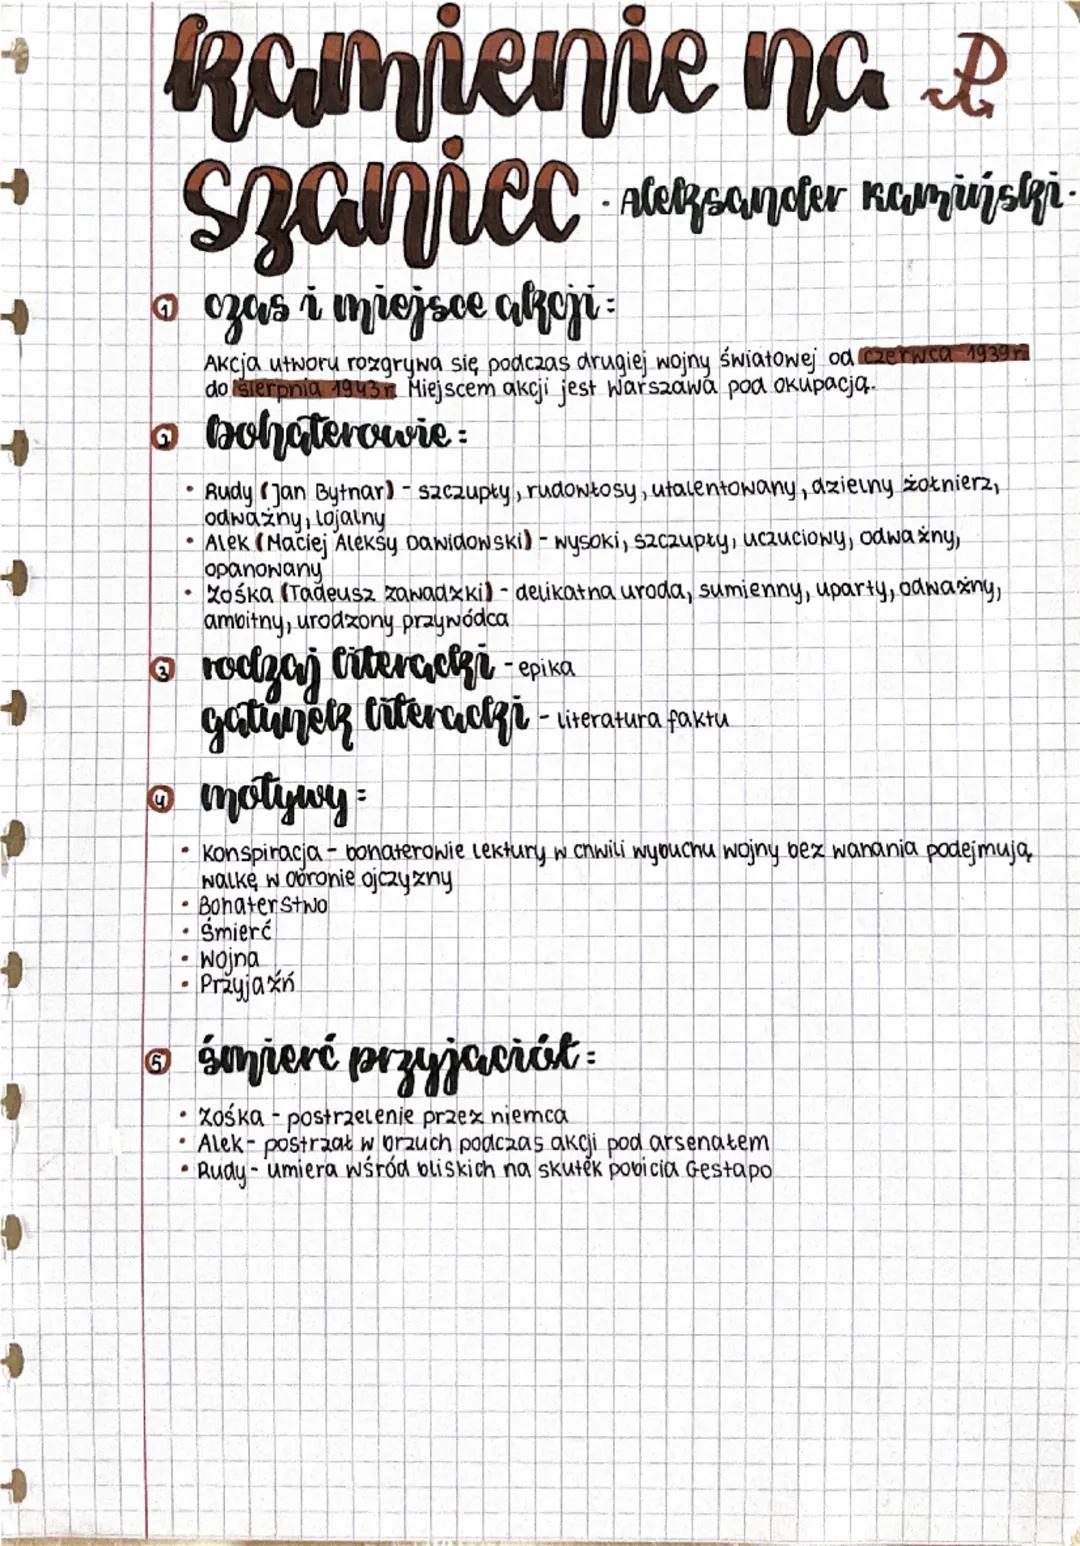 Kamienie na
szaniec - Aleksander Kamiński -
1 czas i miejsce akcji:
Akcja utworu rozgrywa się podczas drugiej wojny światowej od czerwca 1939r
do sierpnia 1943r. Miejscem akcji jest Warszawa pod okupacją.
2 bohaterowie:
• Rudy (Jan Bytnar) - szczupły, rudowłosy, utalentowany, dzielny żołnierz,
odważny, lojalny
• Alek (Maciej Aleksy Dawidowski) - wysoki, szczupły, uczuciowy, odważny,
opanowany
• Zośka (Tadeusz Zawadzki) - delikatna uroda, sumienny, uparty, odważny,
ambitny, urodzony przywódca
3 rodzaj literacki - epika
gatunek literacki - literatura faktu
4 motywy:
• Konspiracja - bohaterowie lektury w chwili wybuchu wojny bez wahania podejmują
walkę w obronie ojczyzny
• Bohaterstwo
• Śmierć
• Wojna
• Przyjaźń
5 śmierć przyjaciół:
• Zośka - postrzelenie przez niemca
• Alek - postrzał w brzuch podczas akcji pod arsenałem
• Rudy - umiera wśród bliskich na skutek pobicia Gestapo